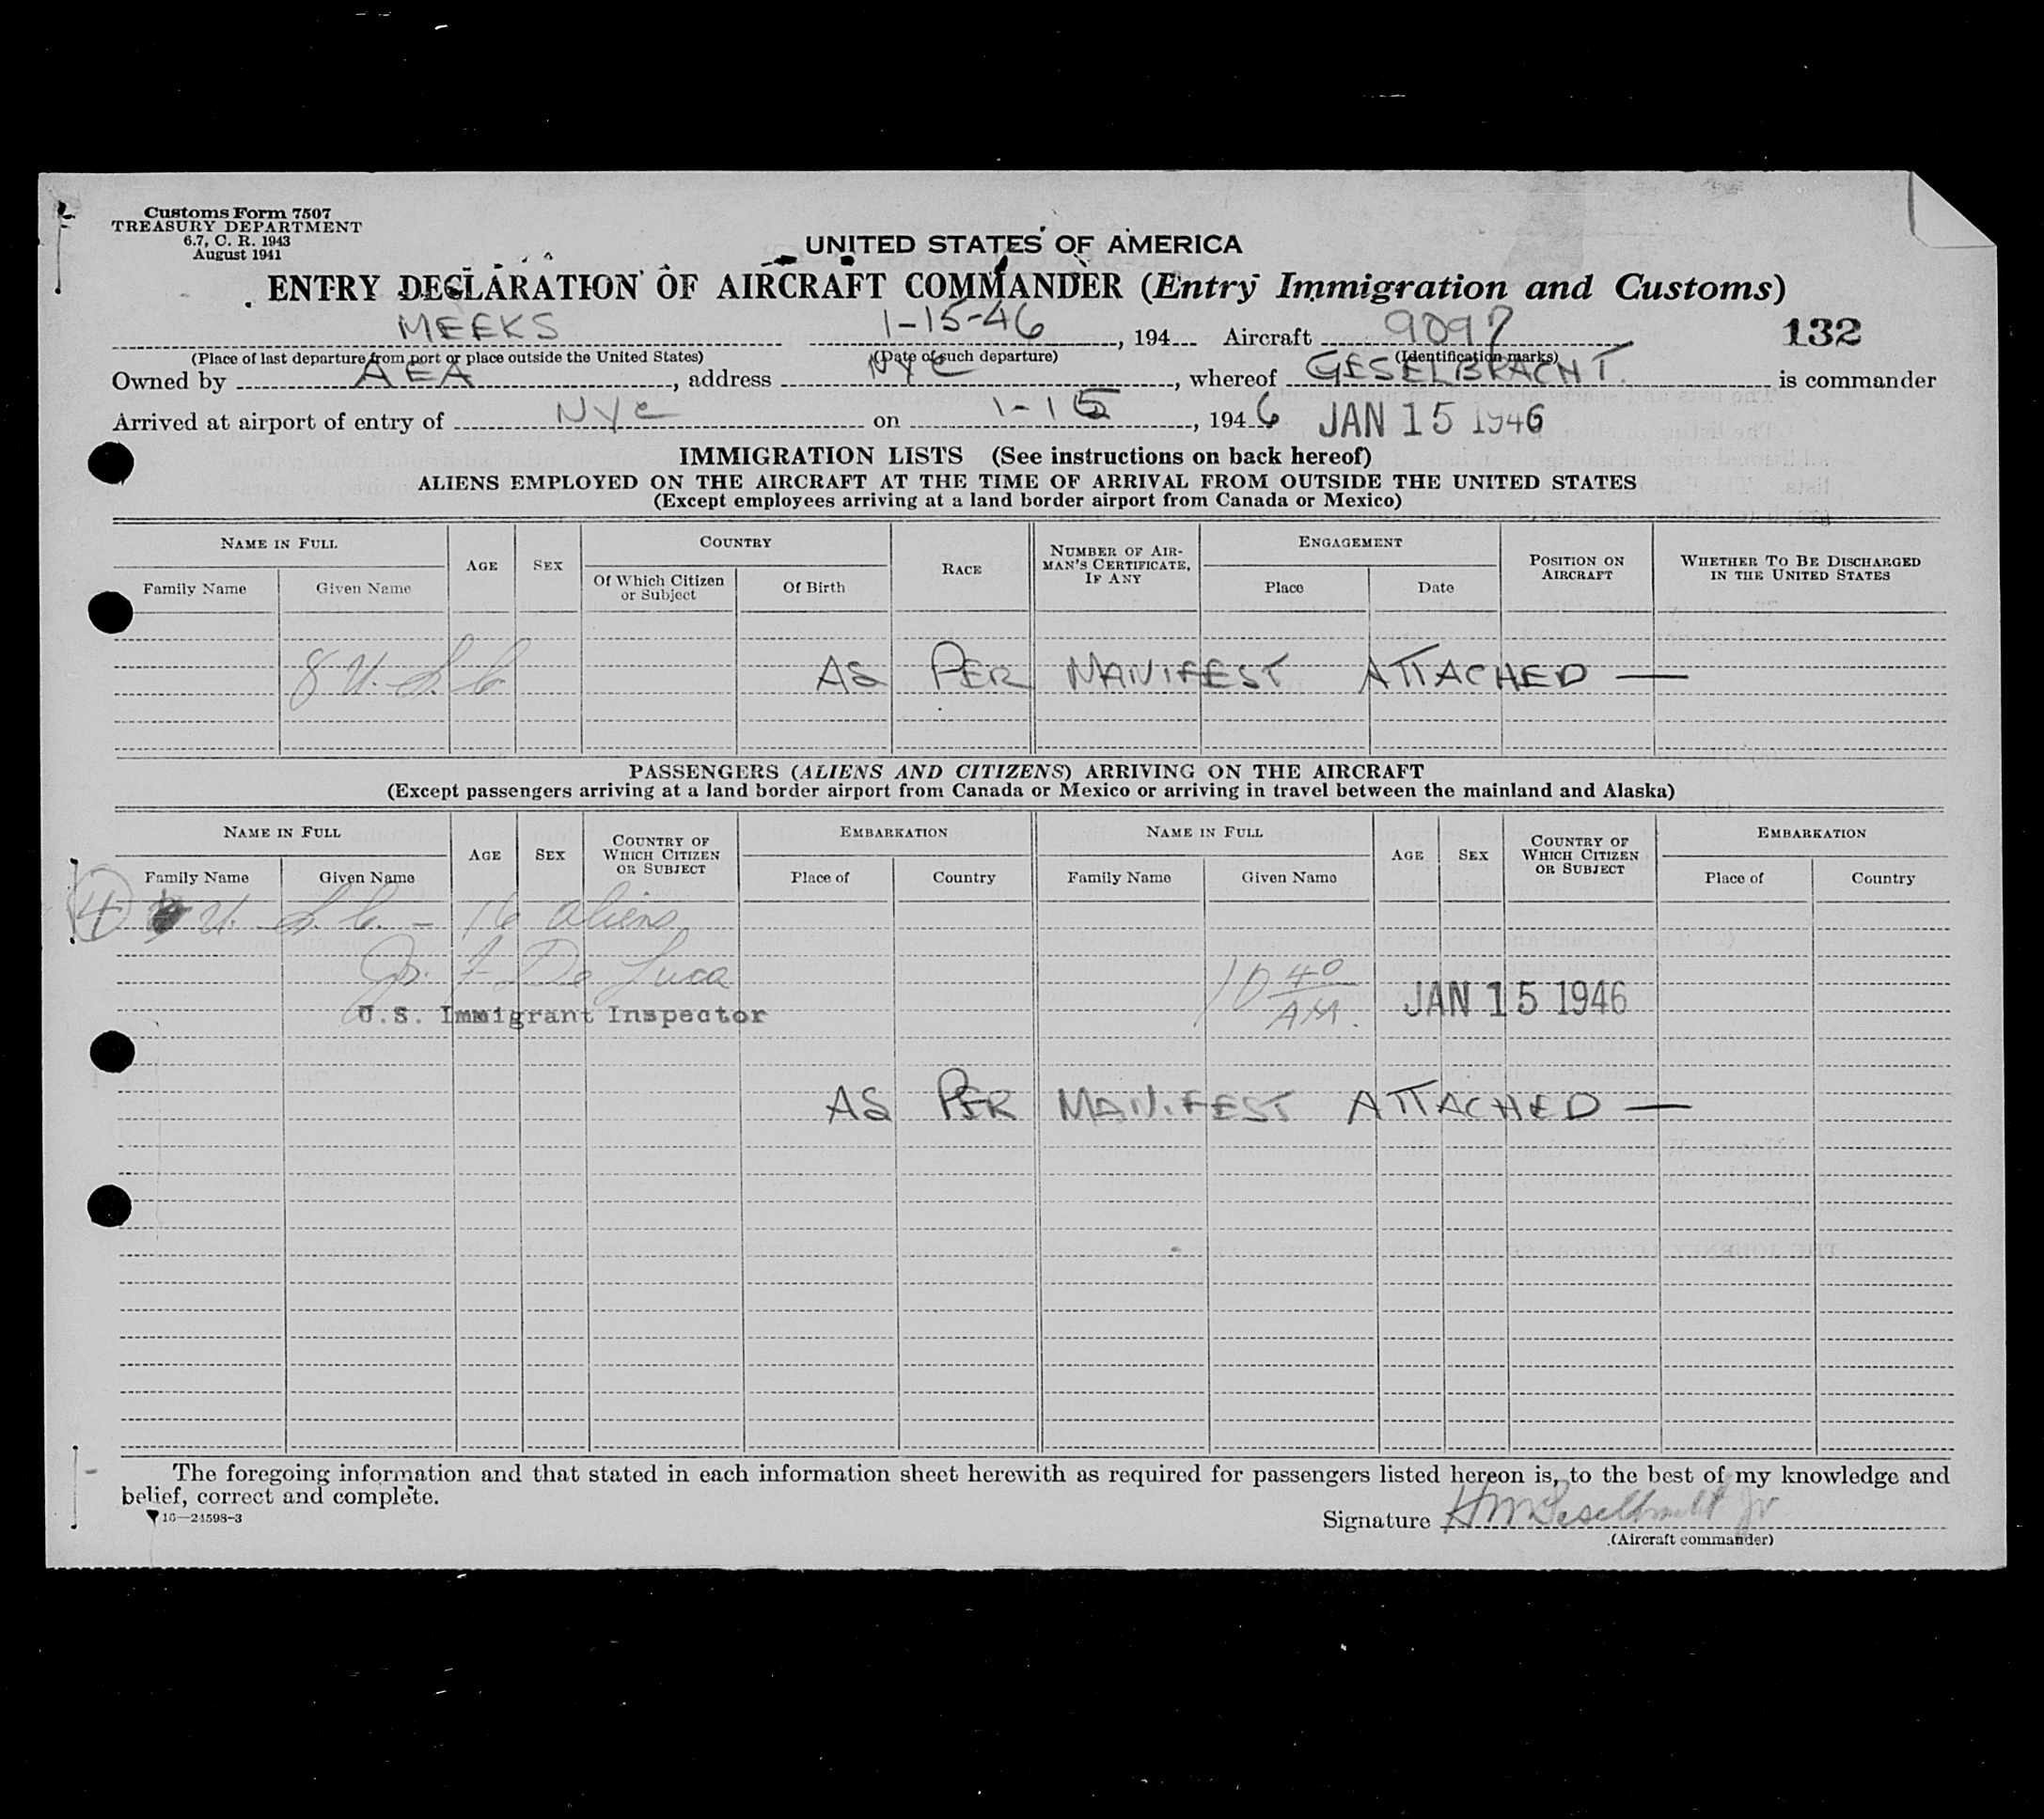 Customs Form 7507
TREASURY DEPARTMENT
6.7, C. R. 1943
August 1941
UNITED STATES OF AMERICA
ENTRY DECLARATION OF AIRCRAFT COMMANDER (Entry Immigration and Customs)
MEEKS 1-15-46, 194 Aircraft 9097 132
(Place of last departure from port or place outside the United States) (Date of such departure) (Identification marks)
Owned by AEA, address NYC, whereof GESELBRACHT. is commander
Arrived at airport of entry of NYC on 1-15, 1946 JAN 15 1946
IMMIGRATION LISTS (See instructions on back hereof)
ALIENS EMPLOYED ON THE AIRCRAFT AT THE TIME OF ARRIVAL FROM OUTSIDE THE UNITED STATES
(Except employees arriving at a land border airport from Canada or Mexico)
NAME IN FULL AGE SEX COUNTRY RACE NUMBER OF AIRMAN'S CERTIFICATE, IF ANY ENGAGEMENT POSITION ON AIRCRAFT WHETHER TO BE DISCHARGED IN THE UNITED STATES
Family Name Given Name Of Which Citizen or Subject Of Birth Place Date
8 U. S. C. AS PER MANIFEST ATTACHED —
PASSENGERS (ALIENS AND CITIZENS) ARRIVING ON THE AIRCRAFT
(Except passengers arriving at a land border airport from Canada or Mexico or arriving in travel between the mainland and Alaska)
NAME IN FULL AGE SEX COUNTRY OF WHICH CITIZEN OR SUBJECT EMBARKATION NAME IN FULL AGE SEX COUNTRY OF WHICH CITIZEN OR SUBJECT EMBARKATION
Family Name Given Name Place of Country Family Name Given Name Place of Country
4 U. S. C. - 16 aliens
Jos. F. De Luca
U.S. Immigrant Inspector 10 40 AM. JAN 15 1946
AS PER MANIFEST ATTACHED —
The foregoing information and that stated in each information sheet herewith as required for passengers listed hereon is, to the best of my knowledge and
belief, correct and complete.
16—24598-3
Signature HM Geselbracht Jr
(Aircraft commander)